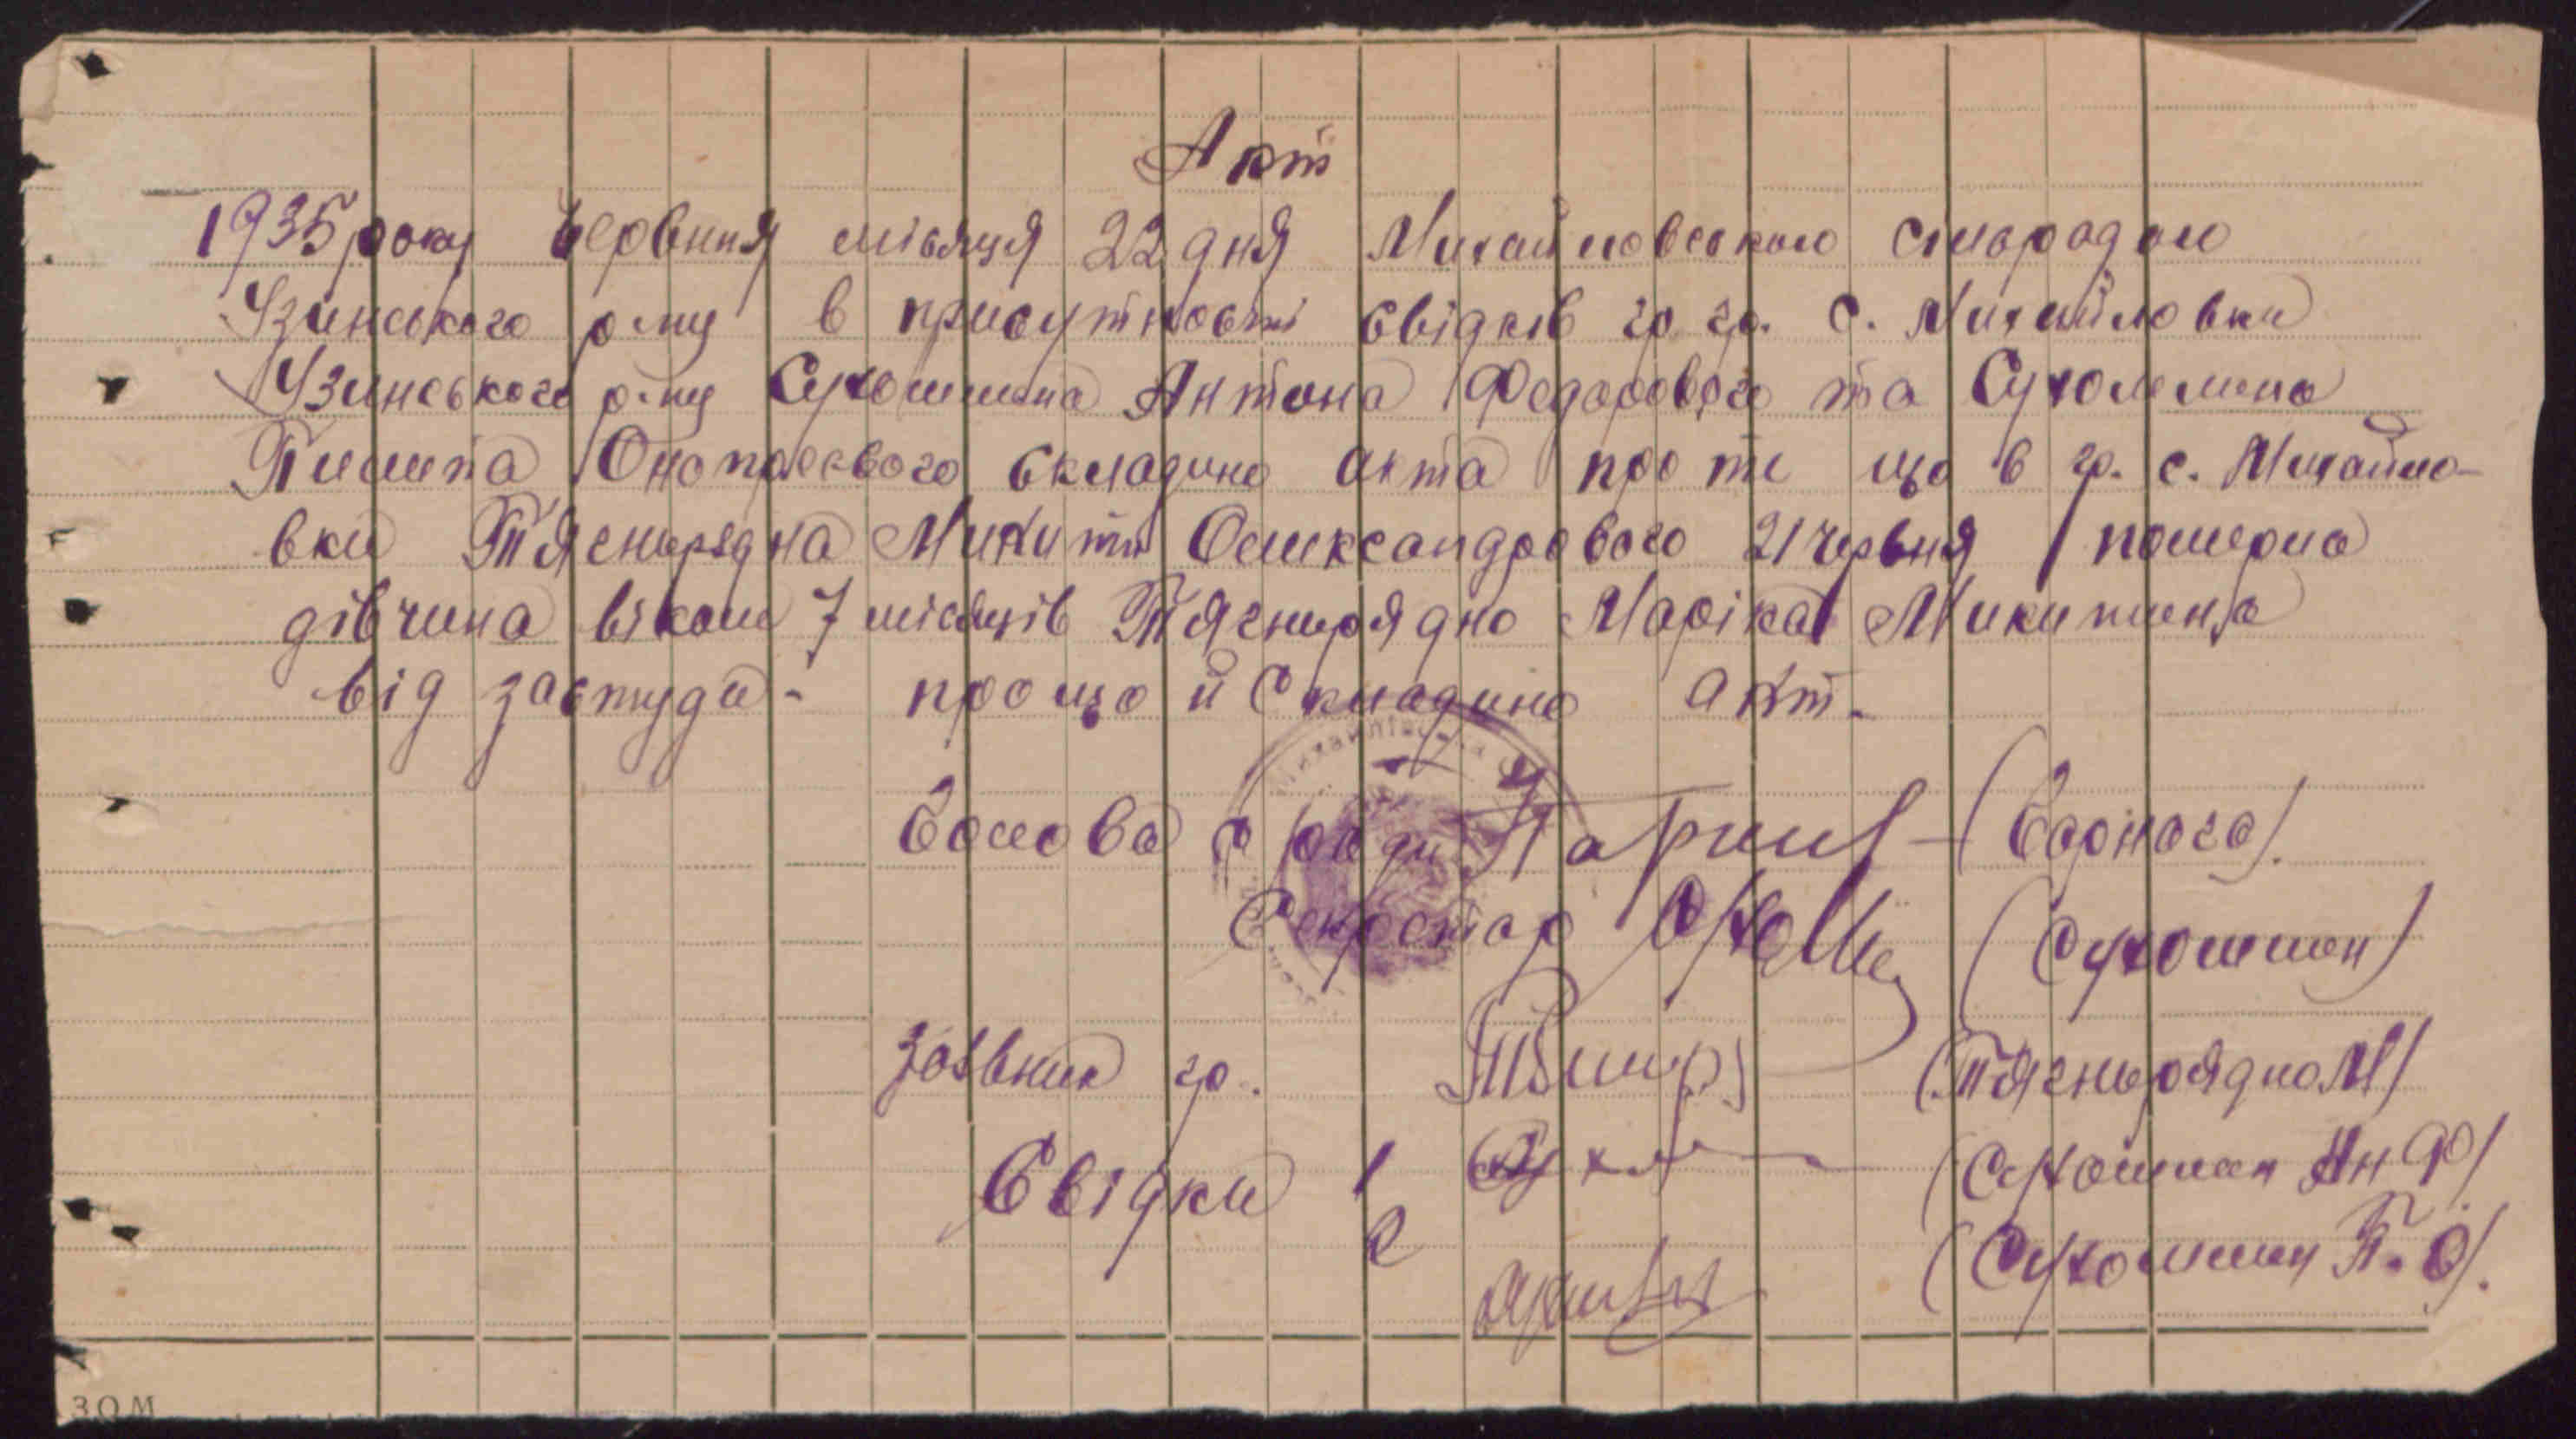 Акт
1935 року червння місяця 22 дня Михайловською сільрадою
Узинського р-ну в присутності свідків гр. гр. с. Михайловки
Узинського р-ну Сухомлина Антона Федорового та Сухомлина
Пилипа Оноприєвого складино акта про те що в гр. с. Михайло-
вки Тягнирядна Микити Олександрового 21 червня померла
дівчина віком 7 місяців Тягнирядно Маріка Микитина
від застуди - про що й складино акт.
Голова с/ради
Секретар (Сухомлин)
Заявник гр. (Тягнирядно М)
Свідки 1 (Сухомлин Ан Ф)
2 (Сухомлин П. О).
ЗОМ